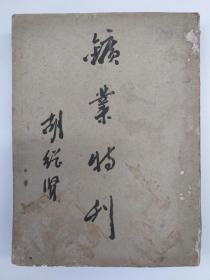 鑛業特刊
胡從賢